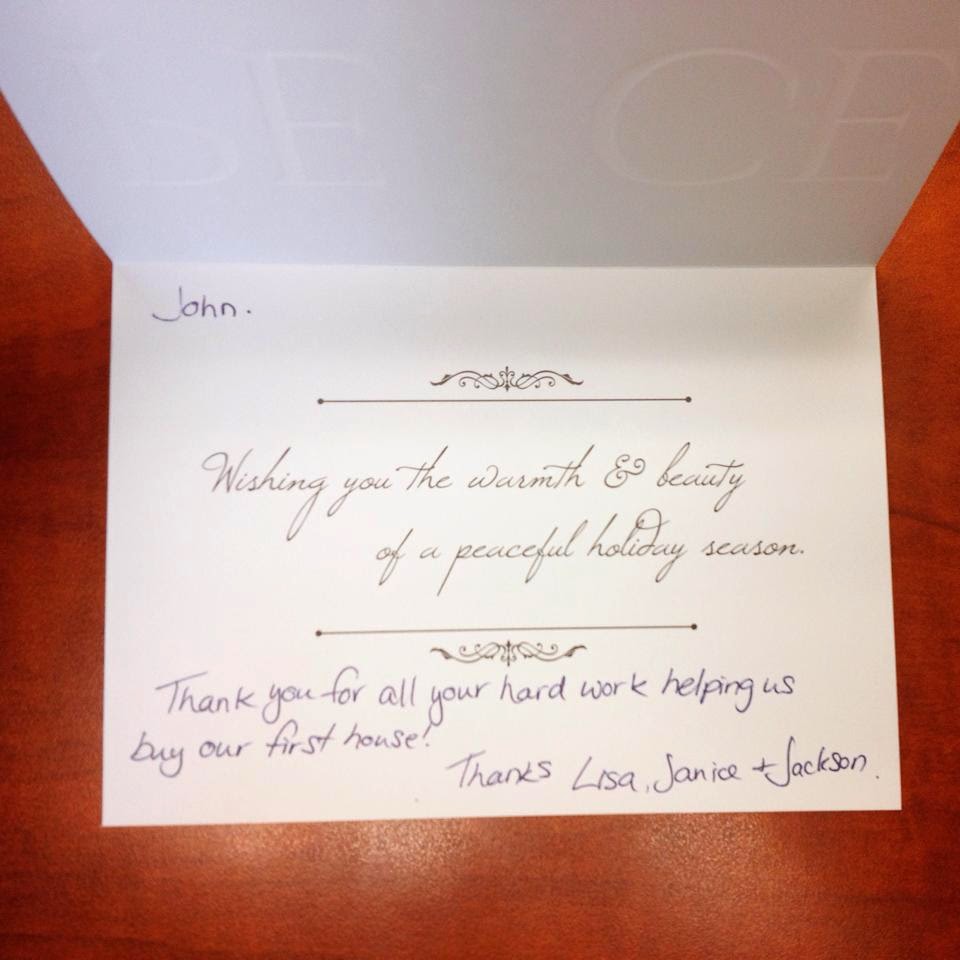 John.
Wishing you the warmth & beauty
of a peaceful holiday season.
Thank you for all your hard work helping us
buy our first house!
Thanks Lisa, Janice + Jackson.